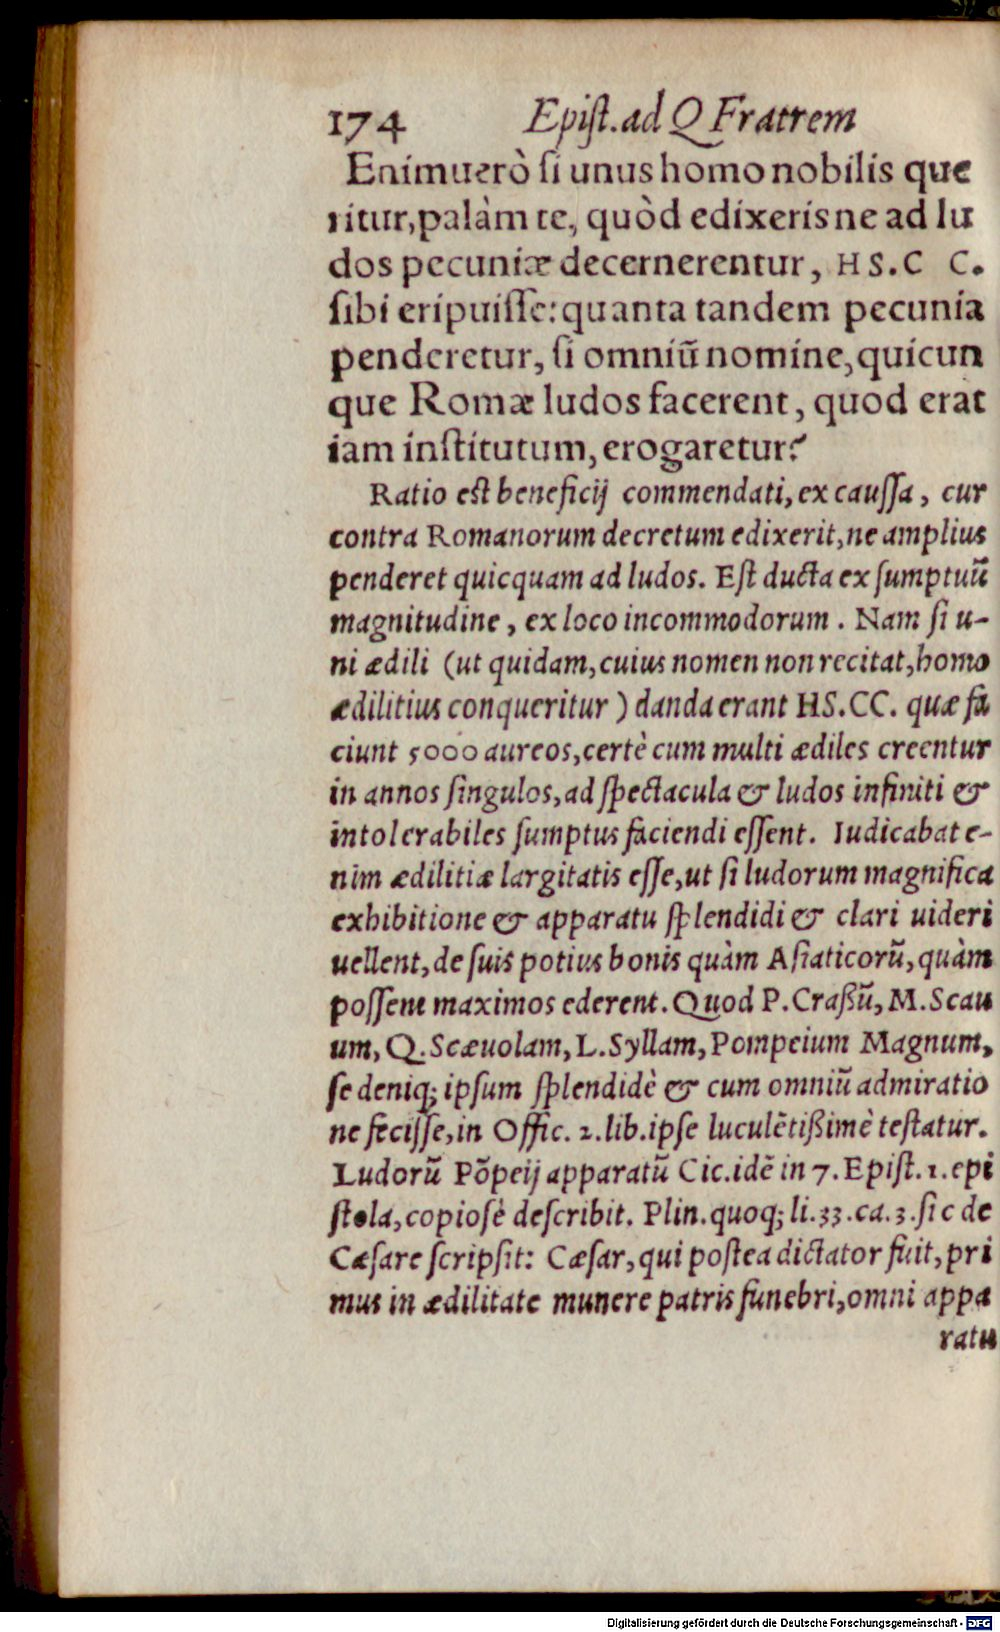 174 Epist. ad Q Fratrem
Enimuerò si unus homo nobilis que
ritur, palàm te, quòd edixeris ne ad lu
dos pecuniæ decernerentur, HS. C C.
sibi eripuisse: quanta tandem pecunia
penderetur, si omniũ nomine, quicun
que Romæ ludos facerent, quod erat
iam institutum, erogaretur?
Ratio est beneficij commendati, ex caussa, cur
contra Romanorum decretum edixerit, ne amplius
penderet quicquam ad ludos. Est ducta ex sumptuũ
magnitudine, ex loco incommodorum. Nam si u-
ni ædili (ut quidam, cuius nomen non recitat, homo
ædilitius conqueritur) danda erant HS. CC. quæ fa
ciunt 5000 aureos, certè cum multi ædiles creentur
in annos singulos, ad spectacula & ludos infiniti &
intolerabiles sumptus faciendi essent. Iudicabat e-
nim ædilitiæ largitatis esse, ut si ludorum magnifica
exhibitione & apparatu splendidi & clari uideri
uellent, de suis potius bonis quàm Asiaticorũ, quàm
possent maximos ederent. Quod P. Craßũ, M. Scau
um, Q. Scæuolam, L. Syllam, Pompeium Magnum,
se deniq; ipsum splendidè & cum omniũ admiratio
ne fecisse, in Offic. 2. lib. ipse luculẽtißimè testatur.
Ludorũ Põpeij apparatũ Cic. idẽ in 7. Epist. 1. epi
stola, copiosè describit. Plin. quoq; li. 33. ca. 3. sic de
Cæsare scripsit: Cæsar, qui postea dictator fuit, pri
mus in ædilitate munere patris funebri, omni appa
ratu
Digitalisierung gefördert durch die Deutsche Forschungsgemeinschaft - DFG